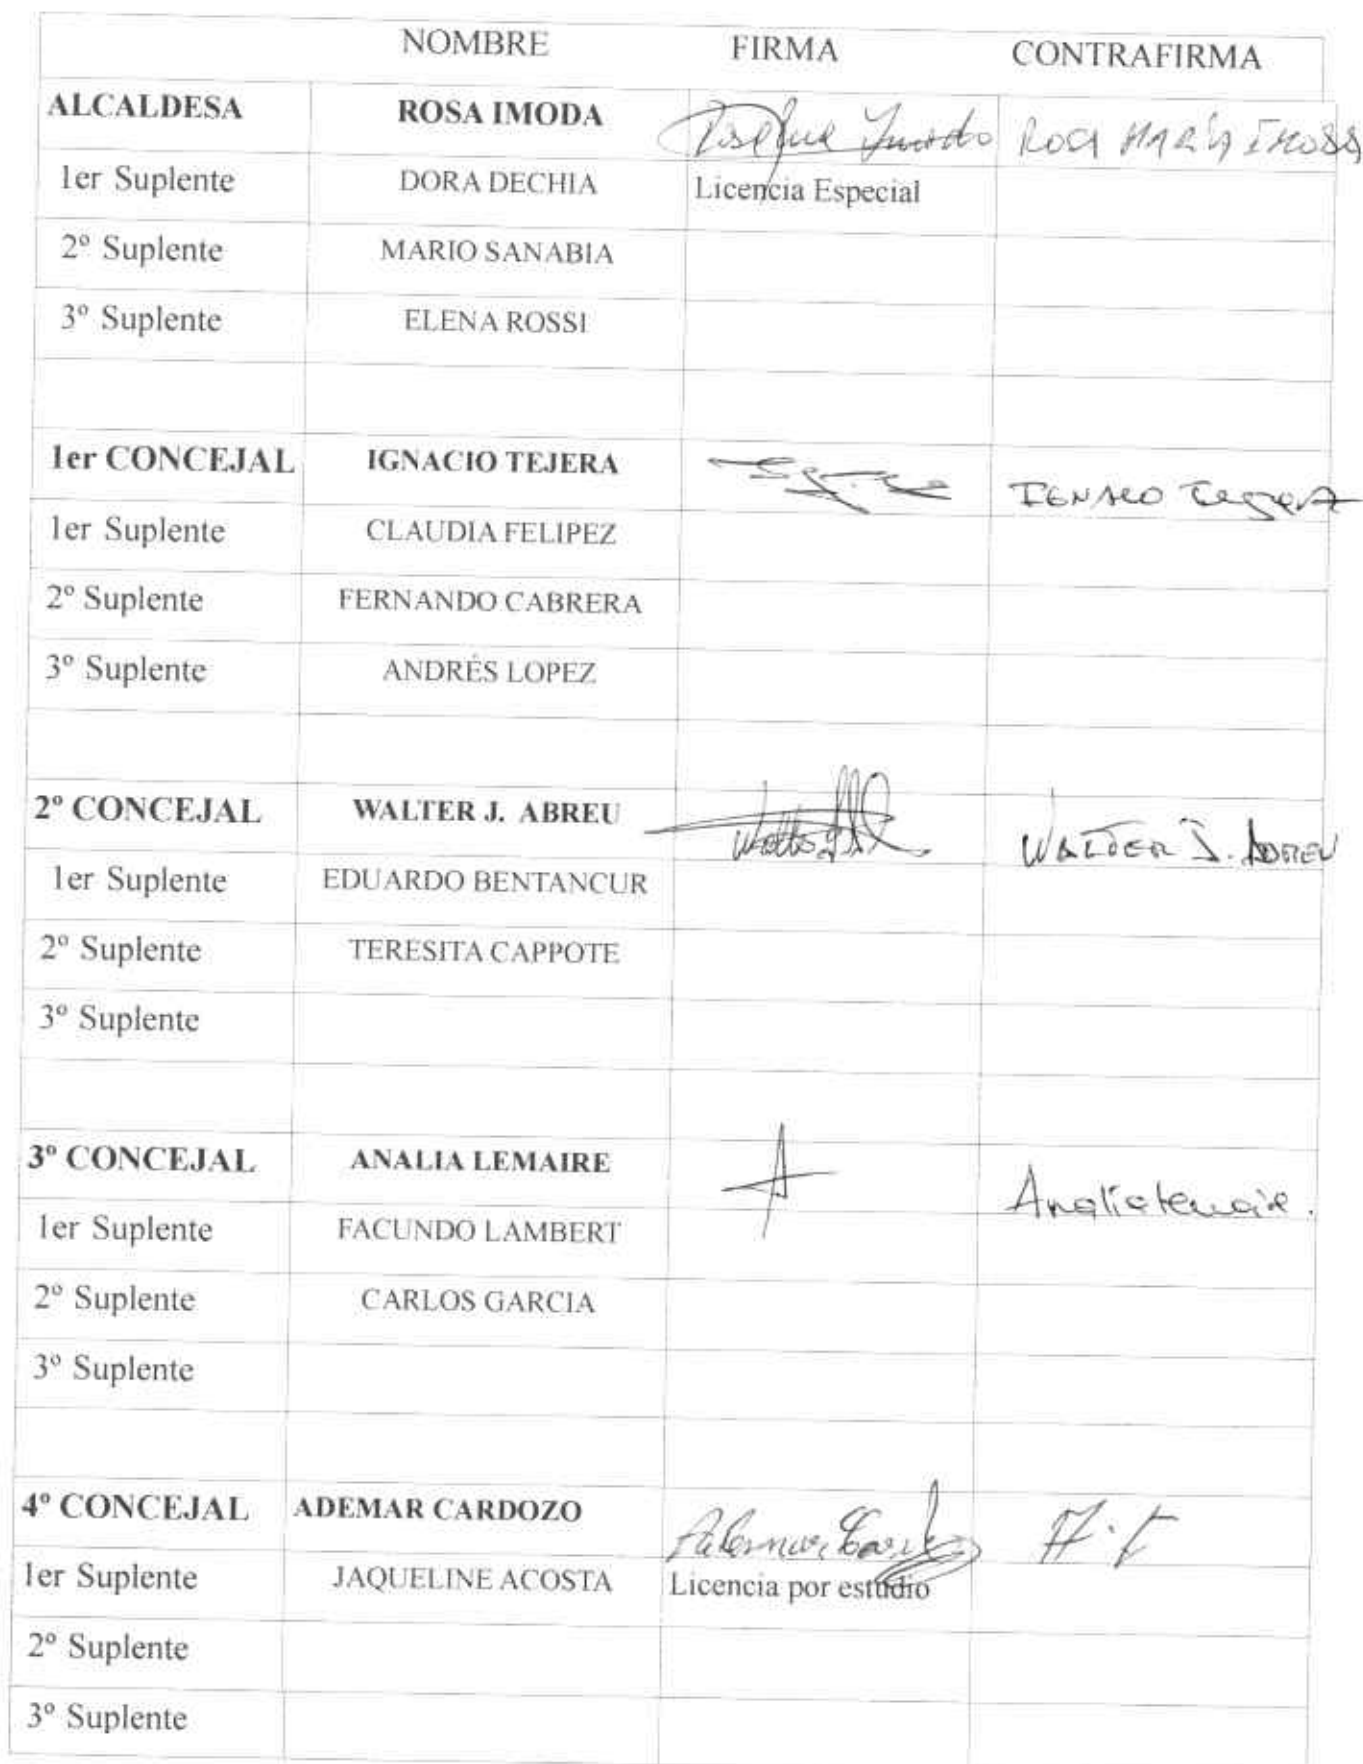 NOMBRE FIRMA CONTRAFIRMA
ALCALDESA ROSA IMODA ROSA MARÍA IMODA
1er Suplente DORA DECHIA Licencia Especial
2º Suplente MARIO SANABIA
3º Suplente ELENA ROSSI
1er CONCEJAL IGNACIO TEJERA IGNACIO Tejera
1er Suplente CLAUDIA FELIPEZ
2º Suplente FERNANDO CABRERA
3º Suplente ANDRÉS LOPEZ
2º CONCEJAL WALTER J. ABREU WALTER J. ABREU
1er Suplente EDUARDO BENTANCUR
2º Suplente TERESITA CAPPOTE
3º Suplente
3º CONCEJAL ANALIA LEMAIRE A Analia Lemaire.
1er Suplente FACUNDO LAMBERT
2º Suplente CARLOS GARCIA
3º Suplente
4º CONCEJAL ADEMAR CARDOZO Ademar
1er Suplente JAQUELINE ACOSTA Licencia por estudio
2º Suplente
3º Suplente